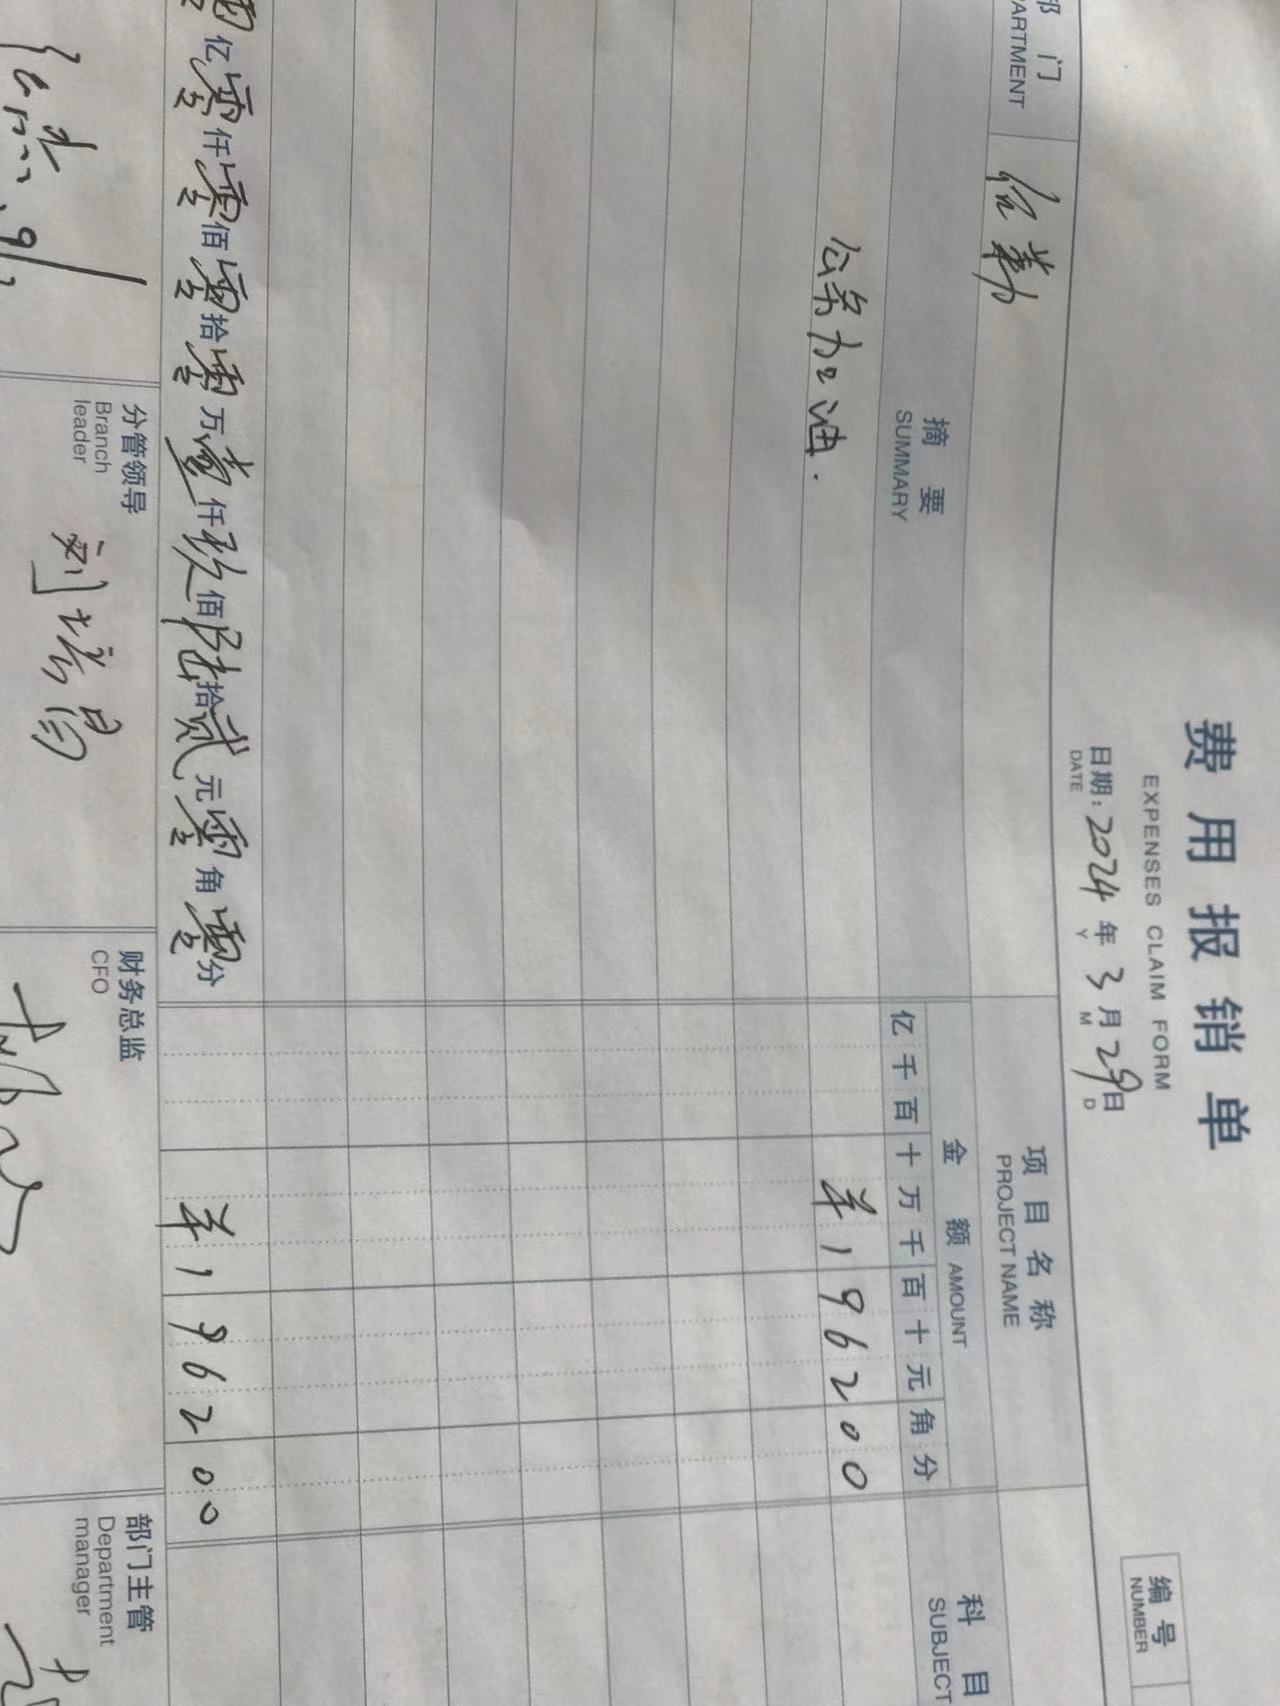 费用报销单
EXPENSES CLAIM FORM
日期：2024年3月29日
DATE Y M D
编号
NUMBER
部门
ARTMENT
项目名称
PROJECT NAME
摘要
SUMMARY
金额 AMOUNT
科目
SUBJECT
亿千百十万千百十元角分
公务加油.
¥196200
亿零仟零佰零拾零万壹仟玖佰陆拾贰元零角零分
¥196200
分管领导
Branch
leader
财务总监
CFO
部门主管
Department
manager